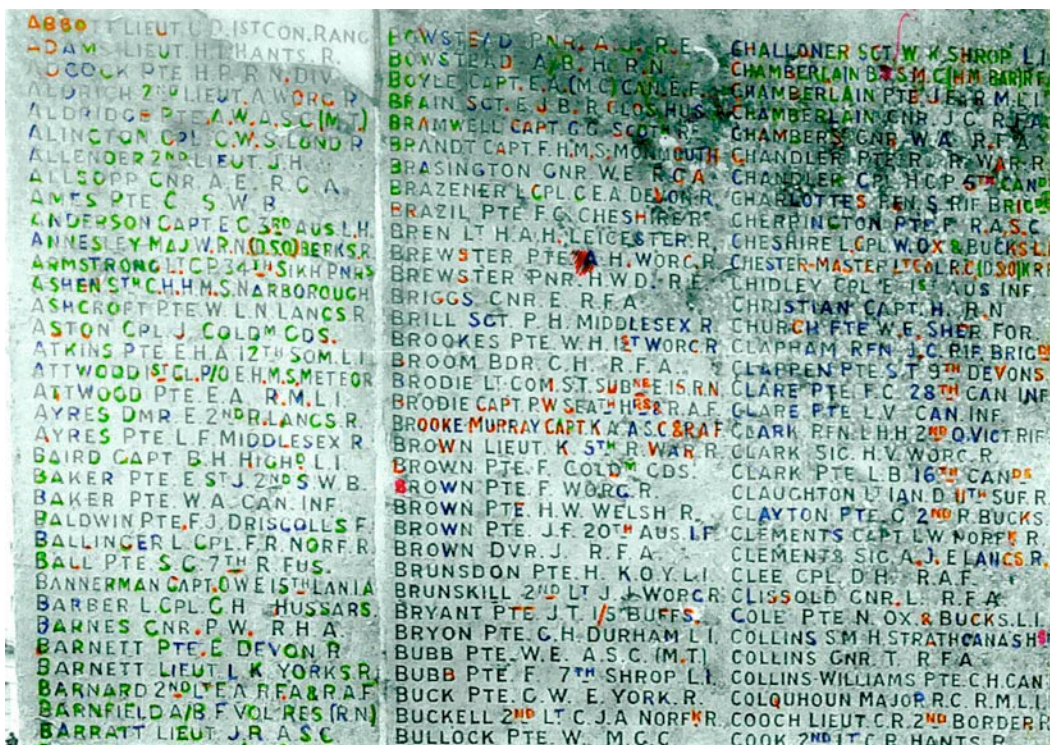 ABBOTT LIEUT. U.D. 1ST CON. RANG
ADAMS LIEUT. H.I. HANTS. R.
ADCOCK PTE H.P. R.N. DIV
ALDRICH 2ND LIEUT. A. WORC. R
ALDRIDGE PTE. A.W. A.S.C (M.T.)
ALINGTON CPL. C.W.S. LOND R
ALLENDER 2ND LIEUT. J.H.
ALLSOPP GNR. A.E. R.G.A.
AMES PTE C. S.W.B.
ANDERSON CAPT. E.C. 3RD AUS. L.H.
ANNESLEY MAJ. W.R.N. (D.S.O) BERKS. R.
ARMSTRONG LT. C.P. 34TH SIKH PNRS
ASHEN STR C.H. H.M.S. NARBOROUGH
ASHCROFT PTE. W. L.N. LANCS R
ASTON CPL. J. COLDM GDS.
ATKINS PTE. E.H.A 12TH SOM. L.I.
ATTWOOD 1ST CL. P/O E. H.M.S. METEOR
ATTWOOD PTE. E.A. R.M.L.I.
AYRES DMR. E. 2ND R. LANCS. R.
AYRES PTE. L.F. MIDDLESEX R.
BAIRD CAPT. B.H. HIGHD L.I.
BAKER PTE. E. ST J. 2ND S.W.B.
BAKER PTE W.A. CAN. INF.
BALDWIN PTE. F.J. DRISCOLLS F.
BALLINGER L.CPL. F.R. NORF. R.
BALL PTE. S.C. 7TH R. FUS.
BANNERMAN CAPT. O.W.E 15TH LAN. I.A
BARBER L.CPL G.H. HUSSARS.
BARNES GNR. P.W. R.H.A.
BARNETT PTE. E DEVON R
BARNETT LIEUT. L.K. YORKS. R
BARNARD 2ND LT. E.A. R.F.A & R.A.F
BARNFIELD A/B. F. VOL. RES (R.N)
BARRATT LIEUT. J.R. A.S.C
BOWSTEAD PNR. A.J. R.E.
BOWSTEAD A.B. H. R.N
BOYLE CAPT. E.A. (M.C) CAN. E.F.
BRAIN SGT. E.J.B. R. GLOS. HUS
BRAMWELL CAPT. G.G. SCOT. RF
BRANDT CAPT. F. H.M.S. MONMOUTH
BRASINGTON GNR. W.E R.G.A
BRAZENER L.CPL. C.E.A DEVON. R
BRAZIL PTE F.G. CHESHIRE R.
BREN LT H.A.H. LEICESTER. R.
BREWSTER PTE A.H. WORC. R
BREWSTER PNR. H.W.D. R.E.
BRIGGS GNR. E R.F.A.
BRILL SGT. P.H. MIDDLESEX R.
BROOKES PTE W.H. 1ST WORC. R
BROOM BDR. C.H. R.F.A.
BRODIE LT-COM. S.T. SUBNE E 15. R.N.
BRODIE CAPT. P.W SEATH HRS & R.A.F.
BROOKE-MURRAY CAPT. K.A. A.S.C & R.A.F
BROWN LIEUT. K. 5TH R. WAR. R
BROWN PTE. F. COLDM GDS.
BROWN PTE. F. WORC. R.
BROWN PTE H.W. WELSH R.
BROWN PTE. J.F. 20TH AUS. I.F
BROWN DVR. J. R.F.A.
BRUNSDON PTE. H. K.O.Y.L.I.
BRUNSKILL 2ND LT J.J. WORC R
BRYANT PTE J.T. 1/5 BUFFS.
BRYON PTE. C.H. DURHAM L.I.
BUBB PTE. W.E. A.S.C. (M.T)
BUBB PTE. F. 7TH SHROP L.I.
BUCK PTE. C.W. E. YORK. R.
BUCKELL 2ND LT C.J.A NORFK R.
BULLOCK PTE W. M.G.C
CHALLONER SGT. W.K. SHROP. L.I.
CHAMBERLAIN B.S.M. C.(H.M. BAR) R.F.
CHAMBERLAIN PTE J.E. R.M.L.I.
CHAMBERLAIN GNR. J.C. R.F.A
CHAMBERS GNR W.A. R.F.A
CHANDLER PTE R. R. WAR. R
CHANDLER CPL H.C.P 5TH CANDS
CHARLOTTES RFN. S. RIF BRIGDE
CHERRINGTON PTE. F. R.A.S.C
CHESHIRE L.CPL. W. OX & BUCKS. L.I
CHESTER-MASTER LT COL. R.C (D.S.O) K.R.
CHIDLEY CPL E. 1ST AUS INF.
CHRISTIAN CAPT. H. R.N
CHURCH PTE W.E. SHER. FOR.
CLAPHAM RFN. J.C. RIF. BRIGDE
CLAPPEN PTE. S.T. 9TH DEVONS
CLARE PTE. F.C. 28TH CAN INF
CLARE PTE L.V. CAN. INF.
CLARK RFN. L.H.H 2ND Q. VICT. RIF
CLARK SIG. H.V. WORC. R.
CLARK PTE L.B. 16TH CANDS
CLAUGHTON LT IAN. D. 11TH SUF. R
CLAYTON PTE. C. 2ND R. BUCKS.
CLEMENTS CAPT L.W. NORFK R.
CLEMENTS SIG A.J. E LANCS. R.
CLEE CPL. D.H. R.A.F.
CLISSOLD GNR. L. R.F.A.
COLE PTE N. OX. & BUCKS. L.I.
COLLINS S.M H. STRATHCANAS H
COLLINS GNR. T. R.F.A
COLLINS-WILLIAMS PTE. C.H. CAN
COLQUHOUN MAJOR R.C. R.M.L.I.
COOCH LIEUT. C.R. 2ND BORDER R
COOK 2ND LT C.R. HANTS R